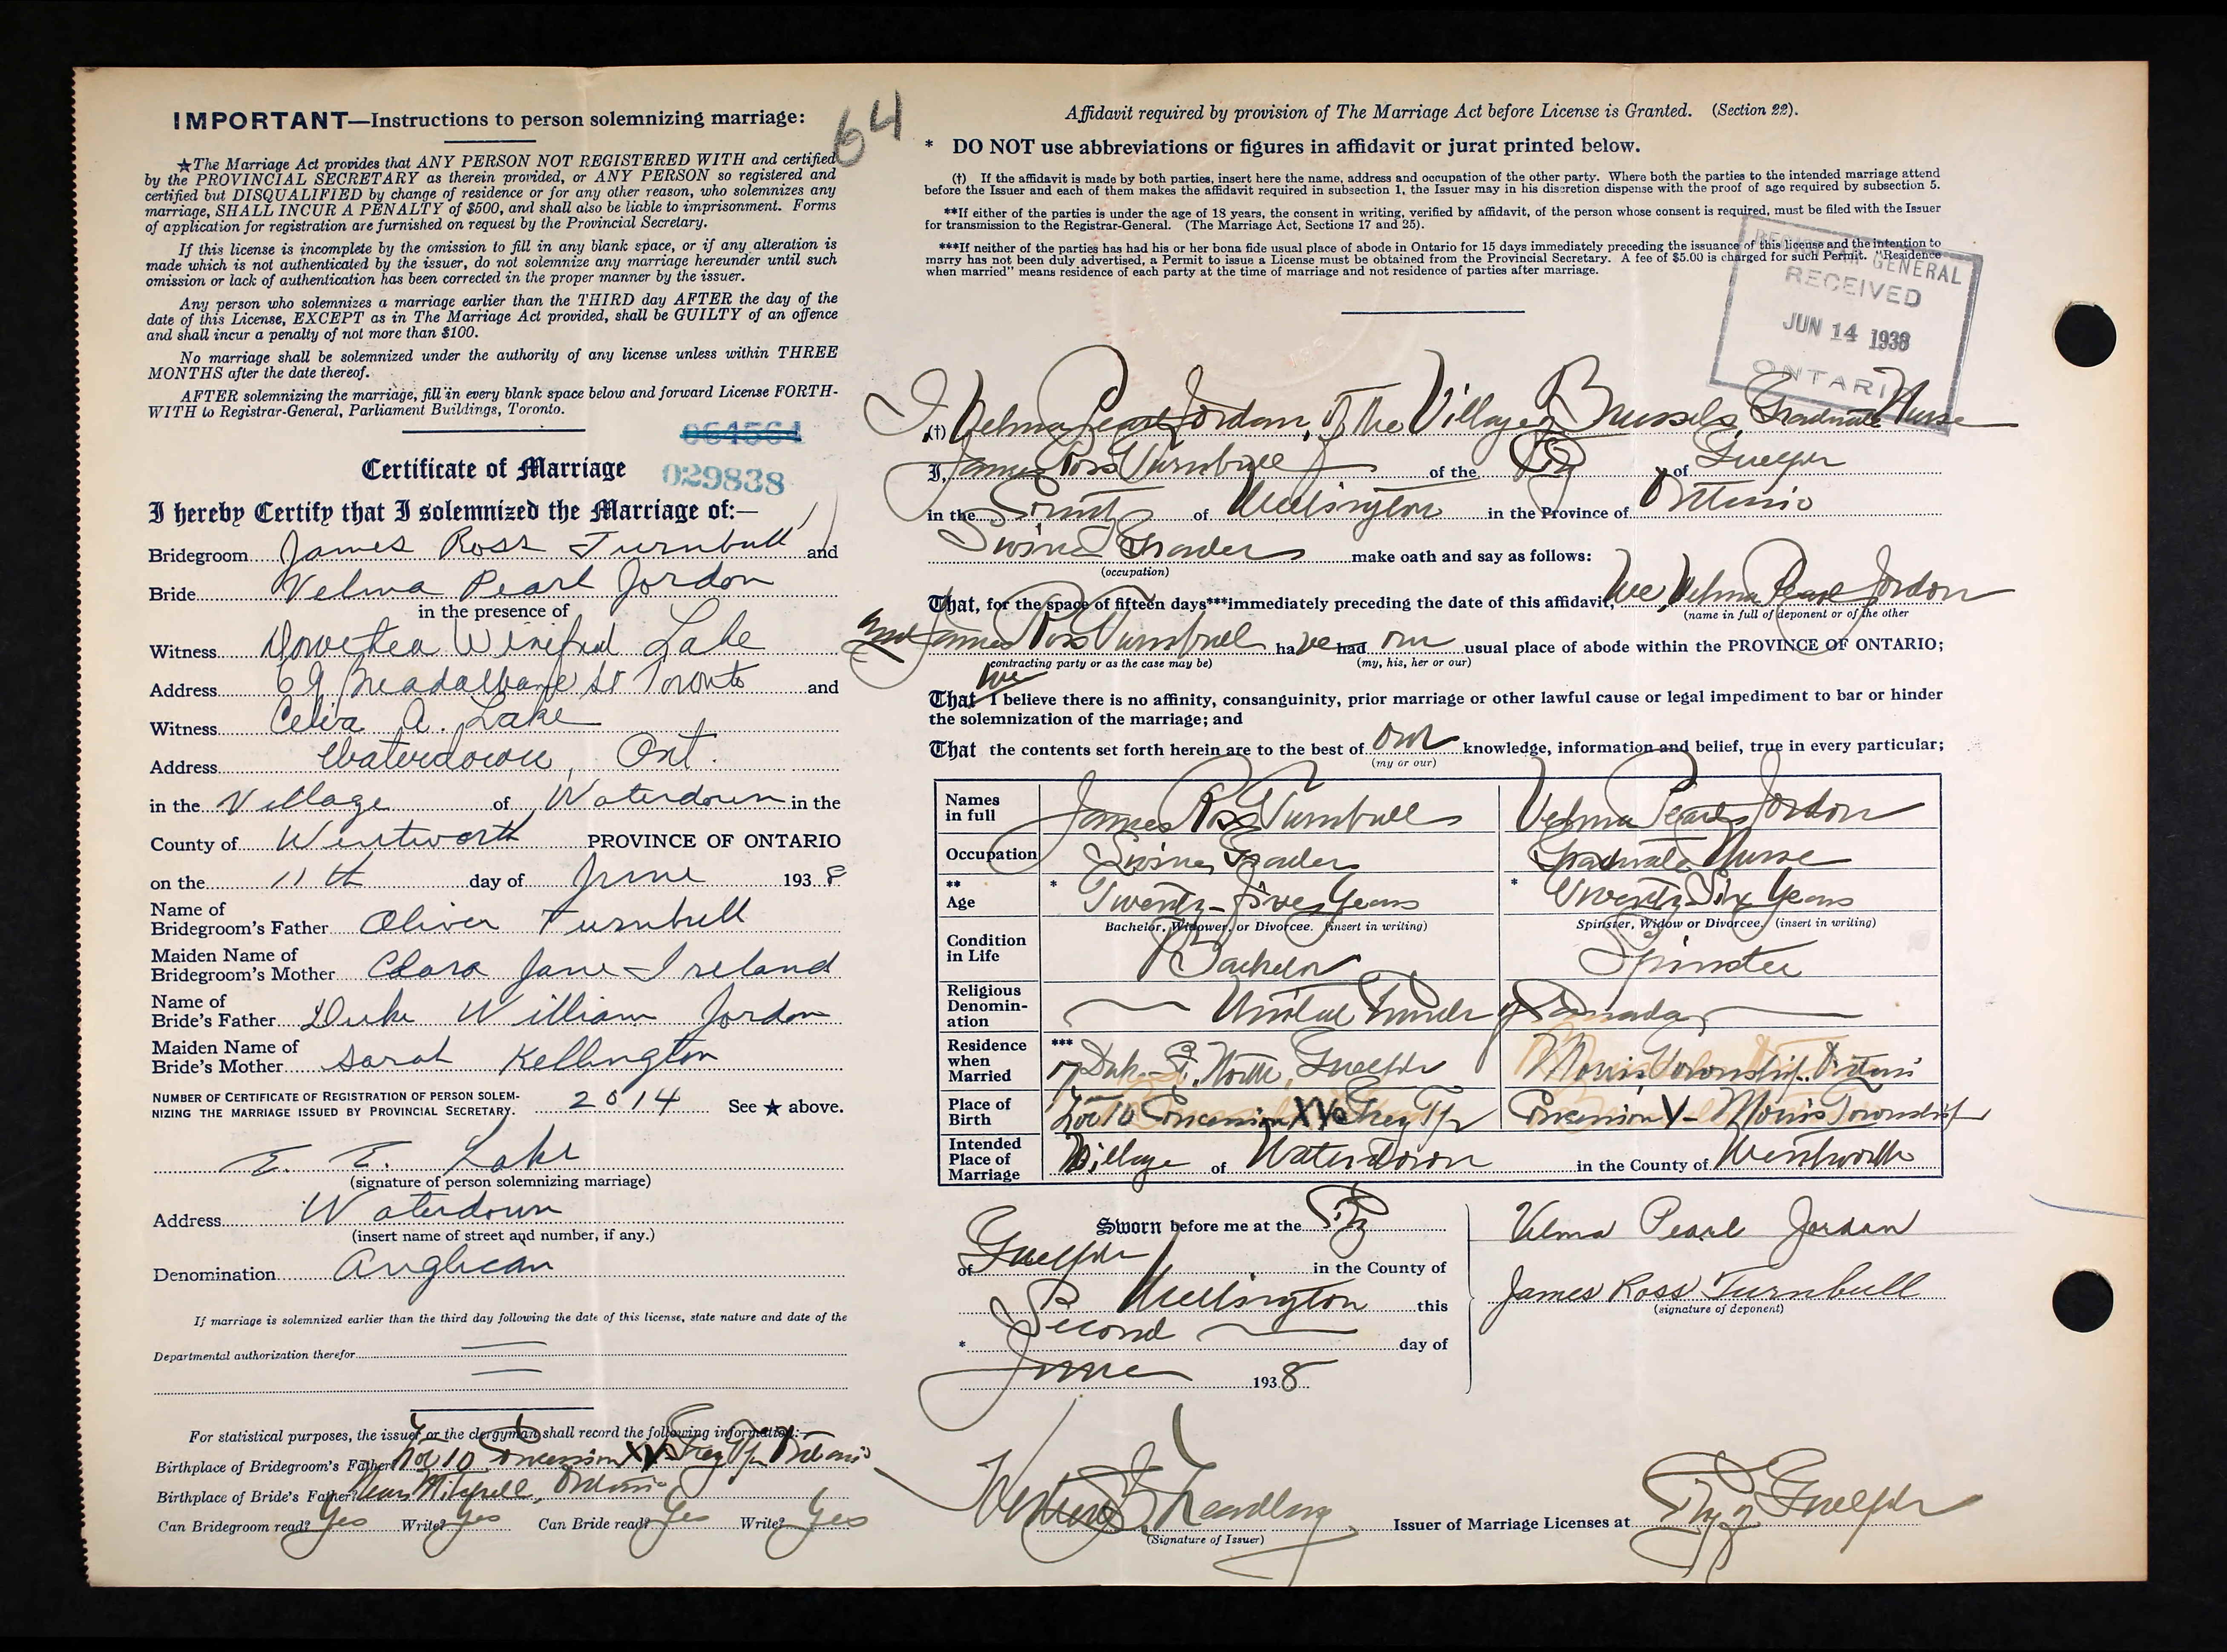 64
IMPORTANT—Instructions to person solemnizing marriage:
★The Marriage Act provides that ANY PERSON NOT REGISTERED WITH and certified
by the PROVINCIAL SECRETARY as therein provided, or ANY PERSON so registered and
certified but DISQUALIFIED by change of residence or for any other reason, who solemnizes any
marriage, SHALL INCUR A PENALTY of $500, and shall also be liable to imprisonment. Forms
of application for registration are furnished on request by the Provincial Secretary.
If this license is incomplete by the omission to fill in any blank space, or if any alteration is
made which is not authenticated by the issuer, do not solemnize any marriage hereunder until such
omission or lack of authentication has been corrected in the proper manner by the issuer.
Any person who solemnizes a marriage earlier than the THIRD day AFTER the day of the
date of this License, EXCEPT as in The Marriage Act provided, shall be GUILTY of an offence
and shall incur a penalty of not more than $100.
No marriage shall be solemnized under the authority of any license unless within THREE
MONTHS after the date thereof.
AFTER solemnizing the marriage, fill in every blank space below and forward License FORTH-
WITH to Registrar-General, Parliament Buildings, Toronto.
064564
Certificate of Marriage 029838
I hereby Certify that I solemnized the Marriage of:—
Bridegroom James Ross Turnbull and
Bride Velma Pearl Jordon
in the presence of
Witness Dorothea Winifred Lake
Address 69 St Toronto and
Witness Celia A. Lake
Address Waterdown, Ont.
in the Village of Waterdown in the
County of Wentworth PROVINCE OF ONTARIO
on the 11th day of June 1938
Name of
Bridegroom's Father Oliver Turnbull
Maiden Name of
Bridegroom's Mother Clara Jane Ireland
Name of
Bride's Father Duke William Jordon
Maiden Name of
Bride's Mother Sarah Kellington
NUMBER OF CERTIFICATE OF REGISTRATION OF PERSON SOLEM-
NIZING THE MARRIAGE ISSUED BY PROVINCIAL SECRETARY. 2014 See ★ above.
Lake
(signature of person solemnizing marriage)
Address Waterdown
(insert name of street and number, if any.)
Denomination Anglican
If marriage is solemnized earlier than the third day following the date of this license, state nature and date of the
Departmental authorization therefor
For statistical purposes, the issuer or the clergyman shall record the following information:—
Birthplace of Bridegroom's Father? Lot 10 Concession XV Grey Tp Ontario
Birthplace of Bride's Father? Near Mitchell, Ontario
Can Bridegroom read? Yes Write? Yes Can Bride read? Yes Write? Yes
Affidavit required by provision of The Marriage Act before License is Granted. (Section 22).
* DO NOT use abbreviations or figures in affidavit or jurat printed below.
(†) If the affidavit is made by both parties, insert here the name, address and occupation of the other party. Where both the parties to the intended marriage attend
before the Issuer and each of them makes the affidavit required in subsection 1, the Issuer may in his discretion dispense with the proof of age required by subsection 5.
**If either of the parties is under the age of 18 years, the consent in writing, verified by affidavit, of the person whose consent is required, must be filed with the Issuer
for transmission to the Registrar-General. (The Marriage Act, Sections 17 and 25).
***If neither of the parties has had his or her bona fide usual place of abode in Ontario for 15 days immediately preceding the issuance of this license and the intention to
marry has not been duly advertised, a Permit to issue a License must be obtained from the Provincial Secretary. A fee of $5.00 is charged for such Permit. "Residence
when married" means residence of each party at the time of marriage and not residence of parties after marriage.
REGISTRAR GENERAL
RECEIVED
JUN 14 1938
ONTARIO
(†) I Velma Pearl Jordan, of the Village of Brussels, Graduate Nurse
I, James Ross Turnbull of the City of Guelph
in the County of Wellington in the Province of Ontario
Swine Grader make oath and say as follows:
(occupation)
That, for the space of fifteen days***immediately preceding the date of this affidavit, We, Velma Pearl Jordon
(name in full of deponent or of the other
and James Ross Turnbull have had our usual place of abode within the PROVINCE OF ONTARIO;
contracting party or as the case may be) (my, his, her or our)
we
That I believe there is no affinity, consanguinity, prior marriage or other lawful cause or legal impediment to bar or hinder
the solemnization of the marriage; and
That the contents set forth herein are to the best of our knowledge, information and belief, true in every particular;
(my or our)
Names in full James Ross Turnbull Velma Pearl Jordon
Occupation Swine Grader Graduate Nurse
** Age * Twenty-five Years * Twenty-Six Years
Bachelor, Widower, or Divorcee. (insert in writing) Spinster, Widow or Divorcee. (insert in writing)
Condition in Life Bachelor Spinster
Religious Denomin-ation United Church of Canada
Residence when Married *** 17 Dub. St. North, Guelph Morris Township, Ontario
Place of Birth Lot 10 Concession XV Grey Tp Concession V - Morris Township
Intended Place of Marriage Village of Waterdown in the County of Wentworth
Sworn before me at the City
of Guelph in the County of
Wellington this
* Second day of
June 1938
Velma Pearl Jordan
James Ross Turnbull
(signature of deponent)
(Signature of Issuer)
Issuer of Marriage Licenses at City of Guelph